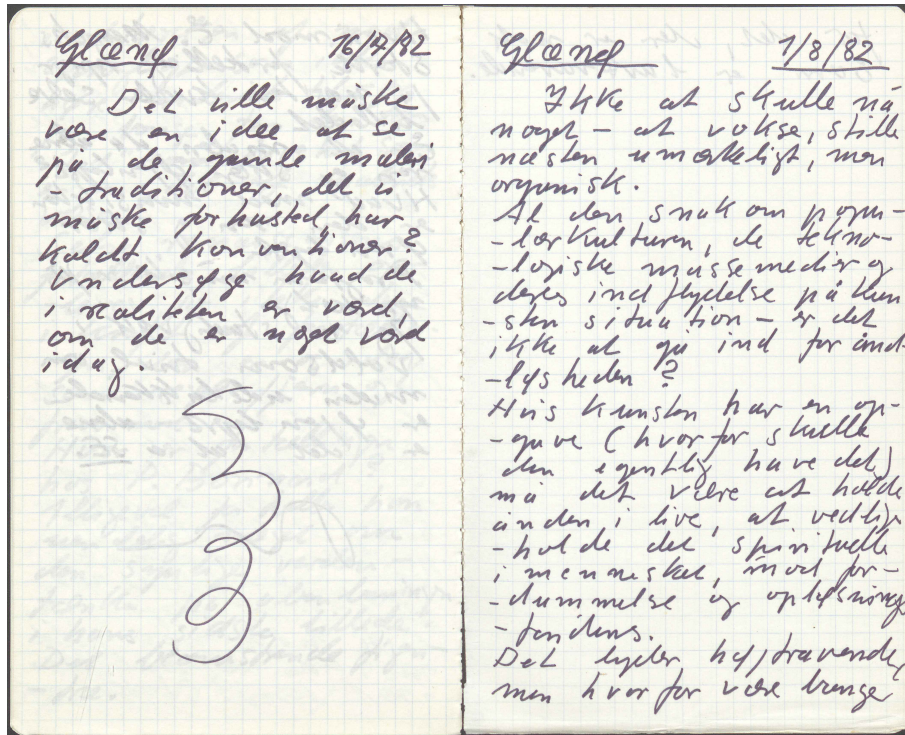 Glænø 16/7/82
Det ville måske
være en idee at se
på de gamle maleri
-traditioner, det vi
måske forhastet har
kaldt konventioner?
Undersøge hvad de
i realiteten er værd,
om de er noget værd
idag.
Glænø 1/8/82
Ikke at skulle nå
noget – at vokse, stille
næsten umærkeligt, men
organisk.
Al den snak om popu-
-lærkulturen, de tekno-
-logiske massemedier og
deres indflydelse på kun
-sten situation – er det
ikke at gå ind for ånd-
-løsheden?
Hvis kunsten har en op-
-gave (hvorfor skulle
den egentlig have det)
må det være at holde
ånden i live, at vedlige
-holde det spirituelle
i mennesket, mod for-
-dummelse og opløsnings
-tendens.
Det lyder højtravende,
men hvorfor være bange